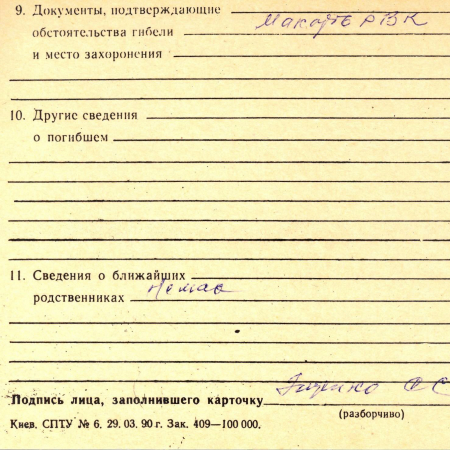 9. Документы, подтверждающие
обстоятельства гибели
и место захоронения
10. Другие сведения
о погибшем
11. Сведения о ближайших
родственниках Немає
Подпись лица, заполнившего карточку
(разборчиво)
Киев. СПТУ № 6. 29. 03. 90 г. Зак. 409—100 000.